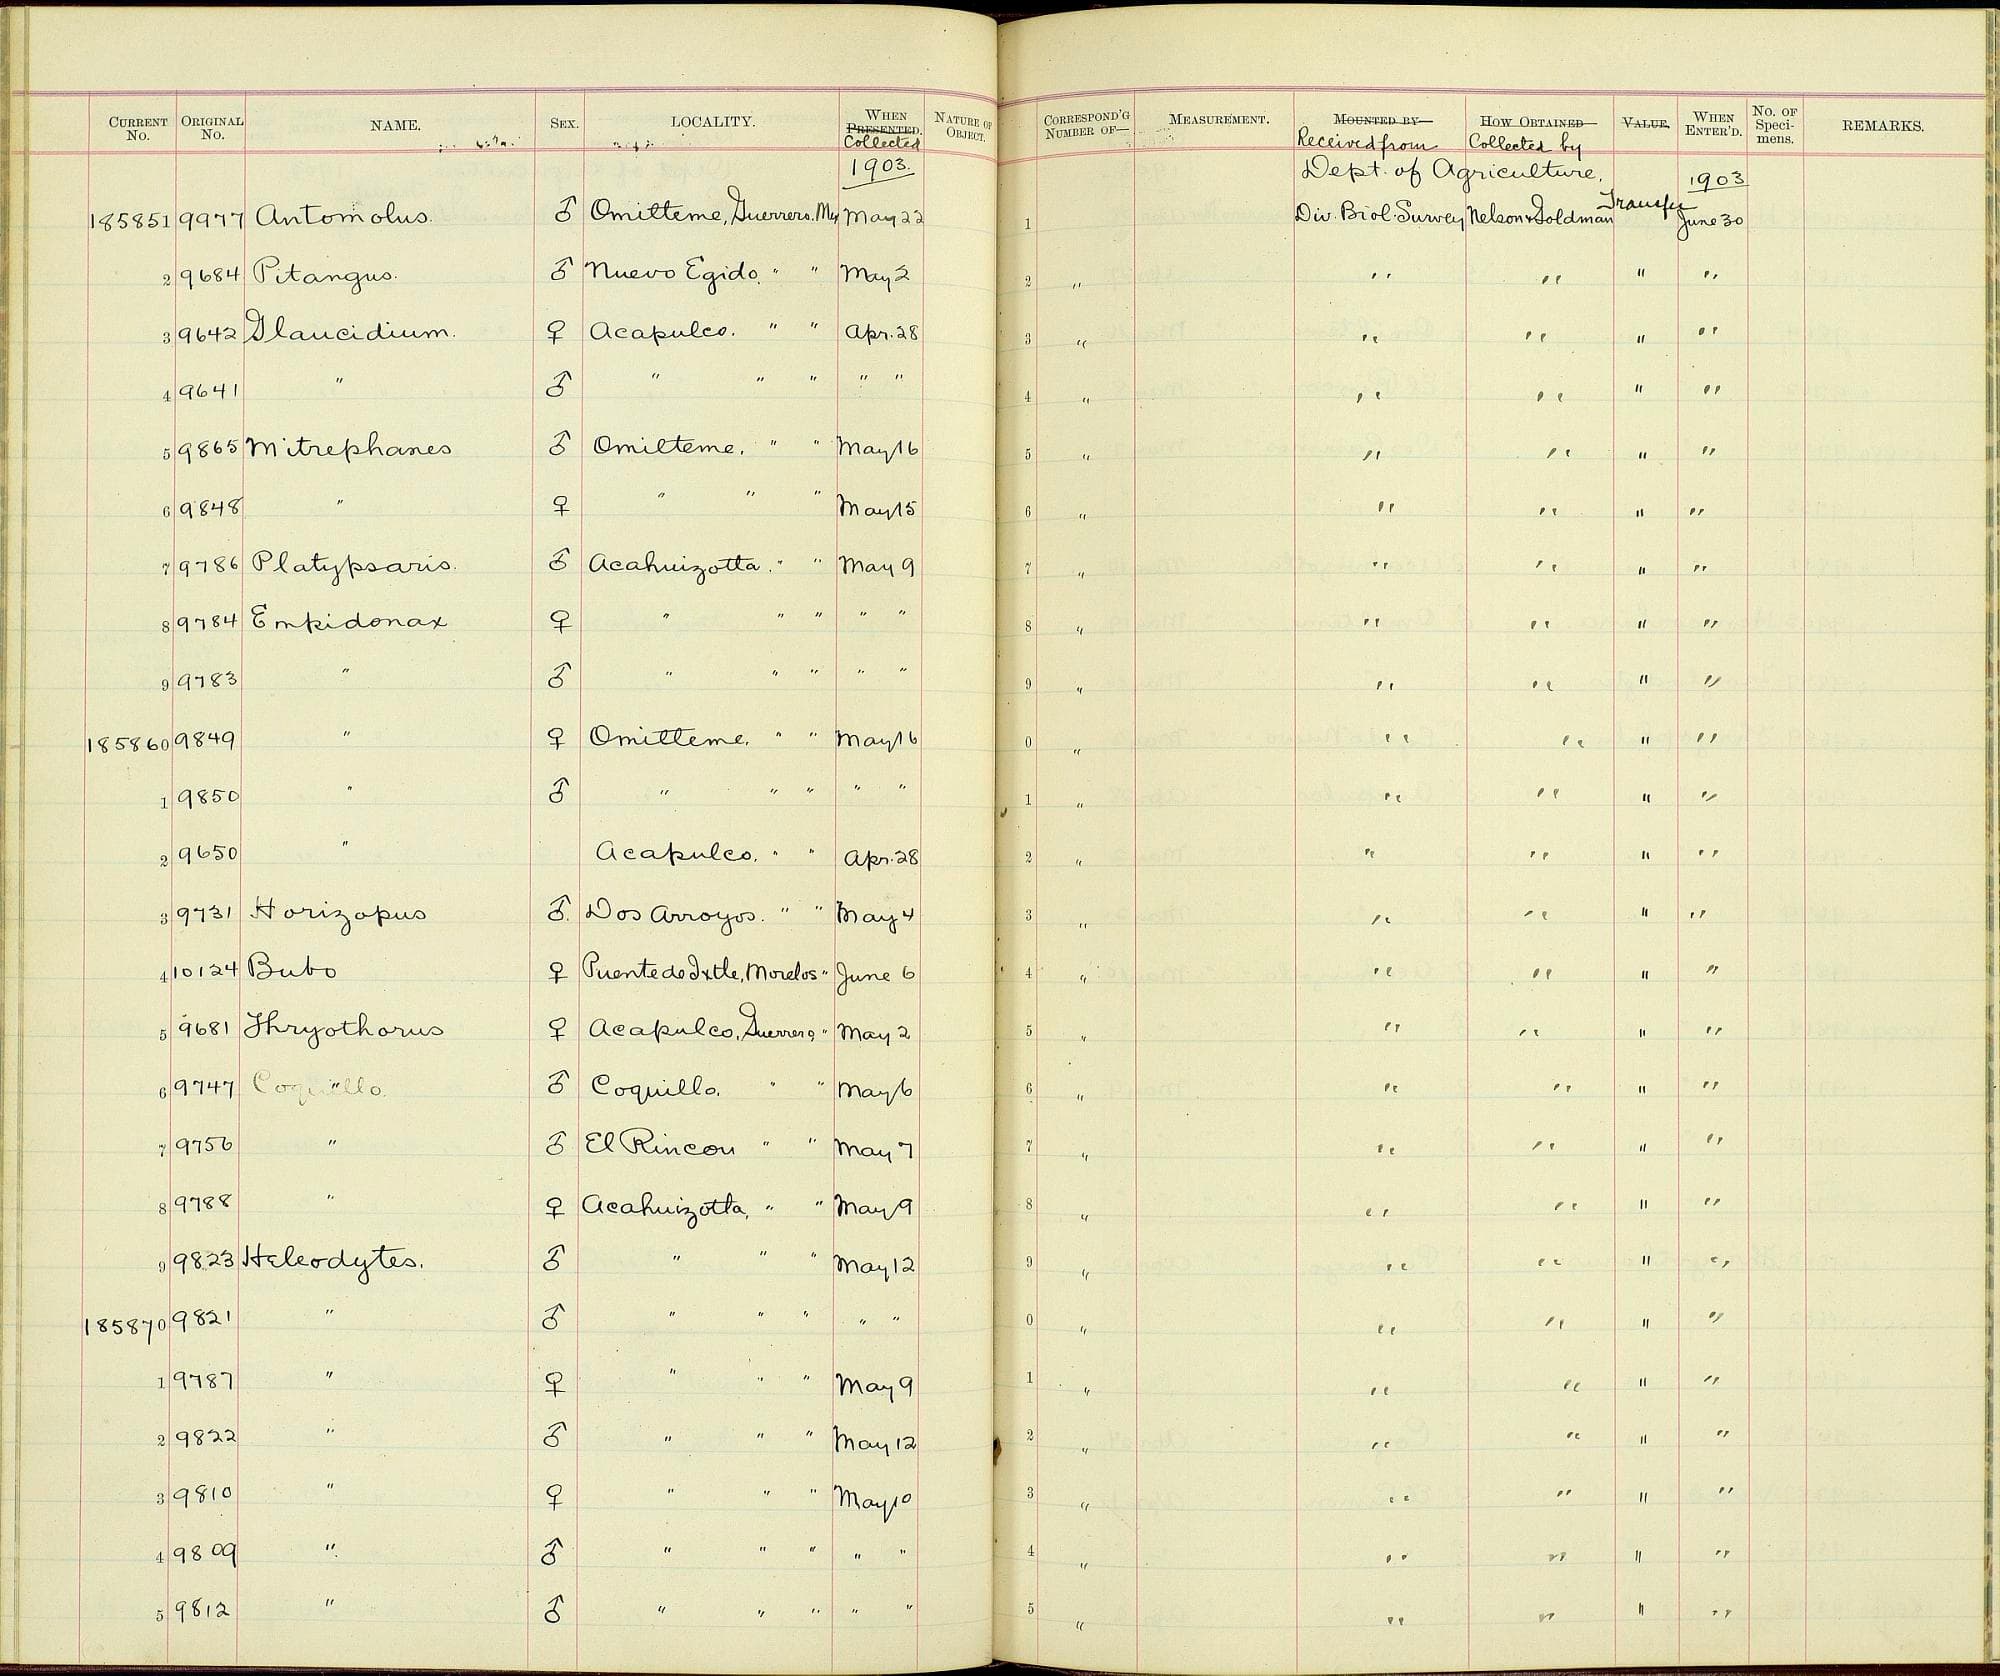 CURRENT No. ORIGINAL No. NAME. SEX. LOCALITY. WHEN PRESENTED. Collected NATURE OF OBJECT. CORRESPOND'G NUMBER OF— MEASUREMENT. MOUNTED BY— Received from HOW OBTAINED Collected by VALUE. WHEN ENTER'D. No. OF Specimens. REMARKS.
1903. Dept. of Agriculture, 1903
185851 9977 Antomolus. ♂ Omilteme, Guerrero. Mex May 22 1 Div. Biol. Survey Nelson & Goldman Transfer June 30
2 9684 Pitangus. ♂ Nuevo Egido. " " May 2 2 " " " " "
3 9642 Glaucidium. ♀ Acapulco. " " Apr. 28 3 " " " " "
4 9641 " ♂ " " " " " 4 " " " " "
5 9865 Mitrephanes ♂ Omilteme, " " May 16 5 " " " " "
6 9848 " ♀ " " " May 15 6 " " " " "
7 9786 Platypsaris. ♂ Acahuizotla. " " May 9 7 " " " " "
8 9784 Empidonax ♀ " " " " " 8 " " " " "
9 9783 " ♂ " " " " " 9 " " " " "
185860 9849 " ♀ Omilteme, " " May 16 0 " " " " "
1 9850 " ♂ " " " " " 1 " " " " "
2 9650 " Acapulco. " " Apr. 28 2 " " " " "
3 9731 Horizopus ♂. Dos Arroyos. " " May 4 3 " " " " "
4 10124 Bubo ♀ Puente de Ixtle, Morelos " June 6 4 " " " " "
5 9681 Thryothorus ♀ Acapulco, Guerrero, " May 2 5 " " " " "
6 9747 Coquillo. " ♂ Coquillo. " " May 6 6 " " " " "
7 9756 " ♂ El Rincon " " May 7 7 " " " " "
8 9788 " ♀ Acahuizotla, " " May 9 8 " " " " "
9 9823 Heleodytes. ♂ " " " May 12 9 " " " " "
185870 9821 " ♂ " " " " " 0 " " " " "
1 9787 " ♀ " " " May 9 1 " " " " "
2 9822 " ♂ " " " May 12 2 " " " " "
3 9810 " ♀ " " " May 10 3 " " " " "
4 9809 " ♂ " " " " " 4 " " " " "
5 9812 " ♂ " " " " " 5 " " " " "